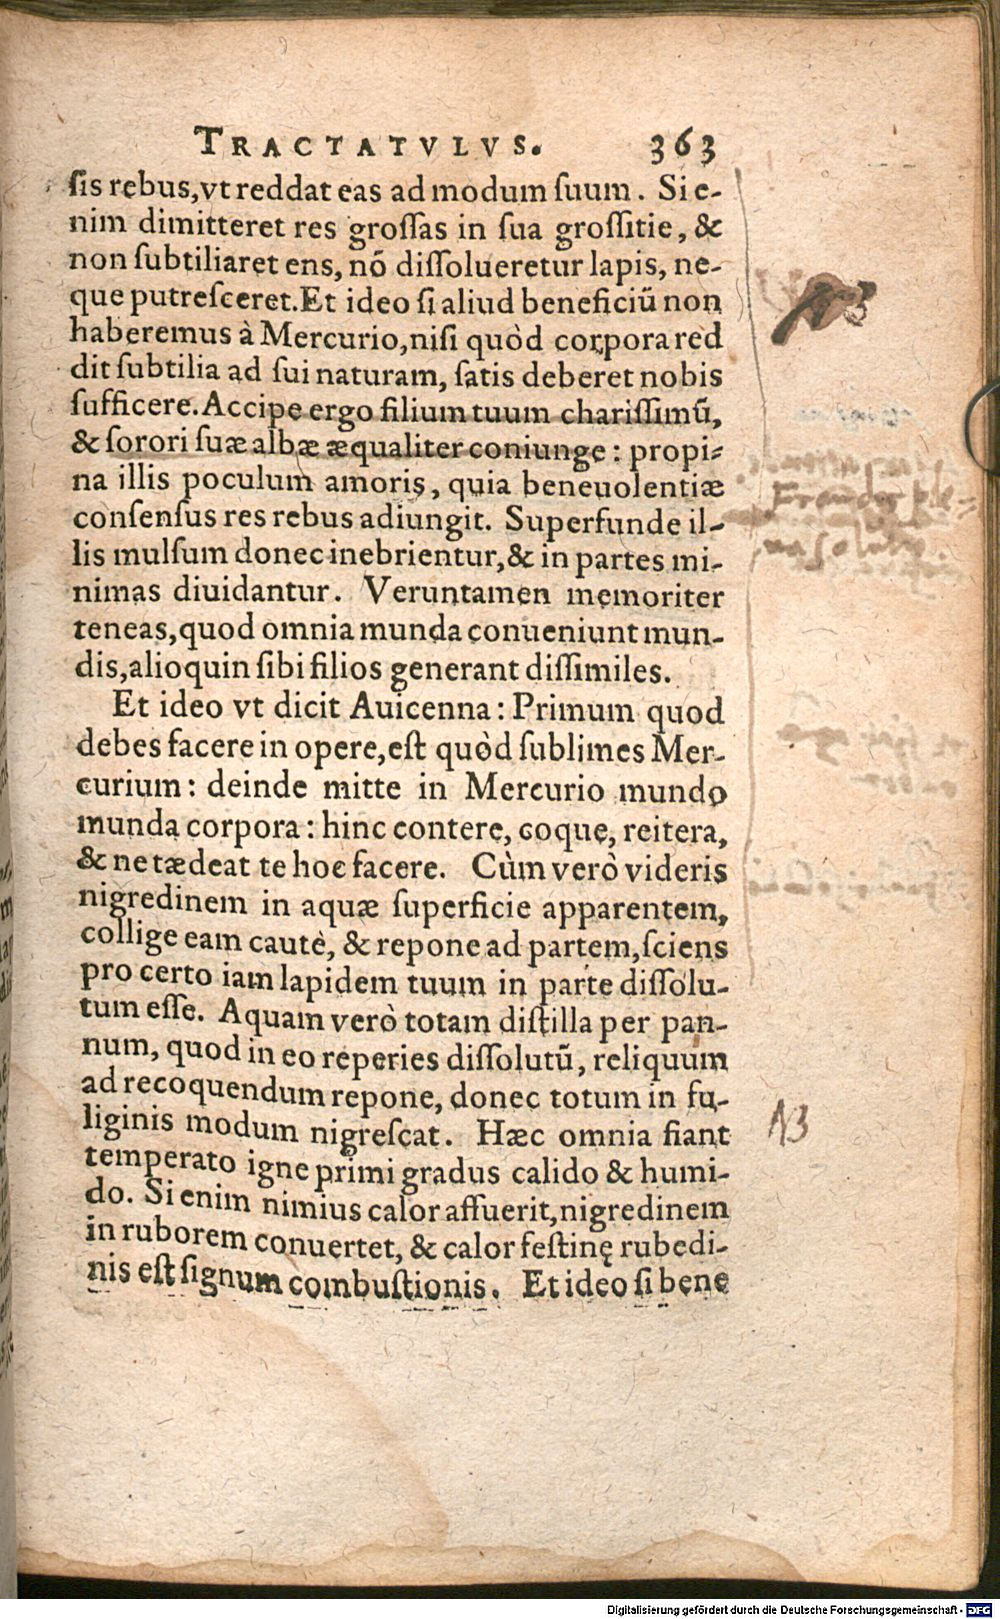 TRACTATVLVS. 363
ſis rebus, vt reddat eas ad modum ſuum. Si e-
nim dimitteret res groſſas in ſua groſſitie, &
non ſubtiliaret ens, nō diſſolueretur lapis, ne-
que putreſceret. Et ideo ſi aliud beneficiū non
haberemus à Mercurio, niſi quòd corpora red
dit ſubtilia ad ſui naturam, ſatis deberet nobis
ſufficere. Accipe ergo filium tuum chariſſimū,
& ſorori ſuæ albæ æqualiter coniunge: propi-
na illis poculum amoris, quia beneuolentiæ
conſenſus res rebus adiungit. Superfunde il-
lis mulſum donec inebrientur, & in partes mi-
nimas diuidantur. Veruntamen memoriter
teneas, quod omnia munda conueniunt mun-
dis, alioquin ſibi filios generant diſſimiles.
Et ideo vt dicit Auicenna: Primum quod
debes facere in opere, eſt quòd ſublimes Mer-
curium: deinde mitte in Mercurio mundo
munda corpora: hinc contere, coque, reitera,
& ne tædeat te hoc facere. Cùm verò videris
nigredinem in aquæ ſuperficie apparentem,
collige eam cautè, & repone ad partem, ſciens
pro certo iam lapidem tuum in parte diſſolu-
tum eſſe. Aquam verò totam diſtilla per pan-
num, quod in eo reperies diſſolutū, reliquum
ad recoquendum repone, donec totum in fu-
liginis modum nigreſcat. Hæc omnia fiant
NB
temperato igne primi gradus calido & humi-
do. Si enim nimius calor affuerit, nigredinem
in ruborem conuertet, & calor feſtinę rubedi-
nis eſt ſignum combuſtionis. Et ideo ſi bene
Digitalisierung gefördert durch die Deutsche Forschungsgemeinschaft - DFG